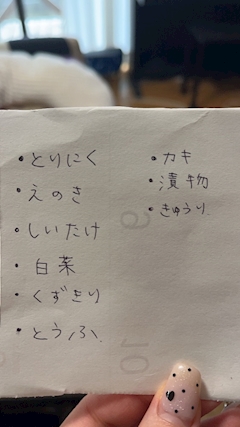 ・とりにく
・えのき
・しいたけ
・白菜
・くずきり
・とうふ
・カキ
・漬物
・きゅうり